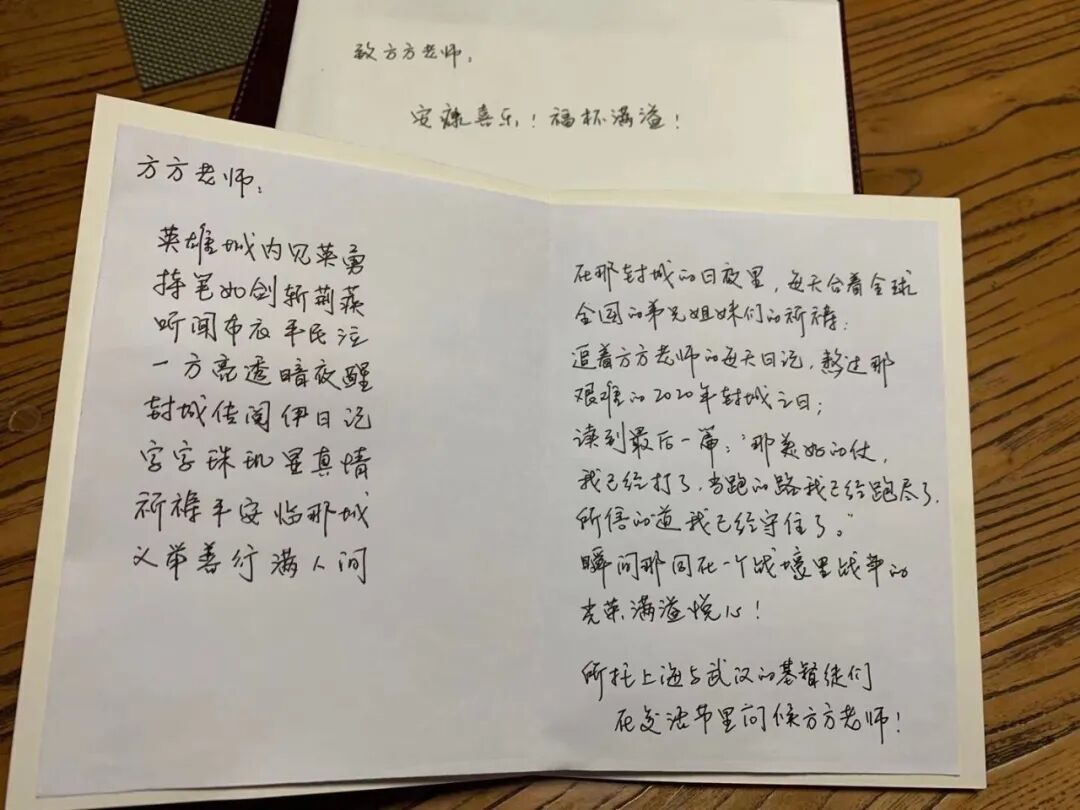 致方方老师：
安康喜乐！福杯满溢！
方方老师：
英雄城内见英勇
持笔如剑斩荆蒺
听闻布衣平民泣
一方亮透暗夜醒
封城传阅伊日记
字字珠玑显真情
祈祷平安临那城
义举善行满人间
在那封城的日夜里，每天合着全球
全国的弟兄姐妹们的祈祷；
追着方方老师的每天日记，熬过那
艰难的2020年封城之日；
读到最后一篇："那美好的仗，
我已经打了，当跑的路我已经跑尽了，
所信的道我已经守住了。"
瞬间那同在一个战壕里战争的
光荣满溢悦心！
所托上海与武汉的基督徒们
在复活节里问候方方老师！